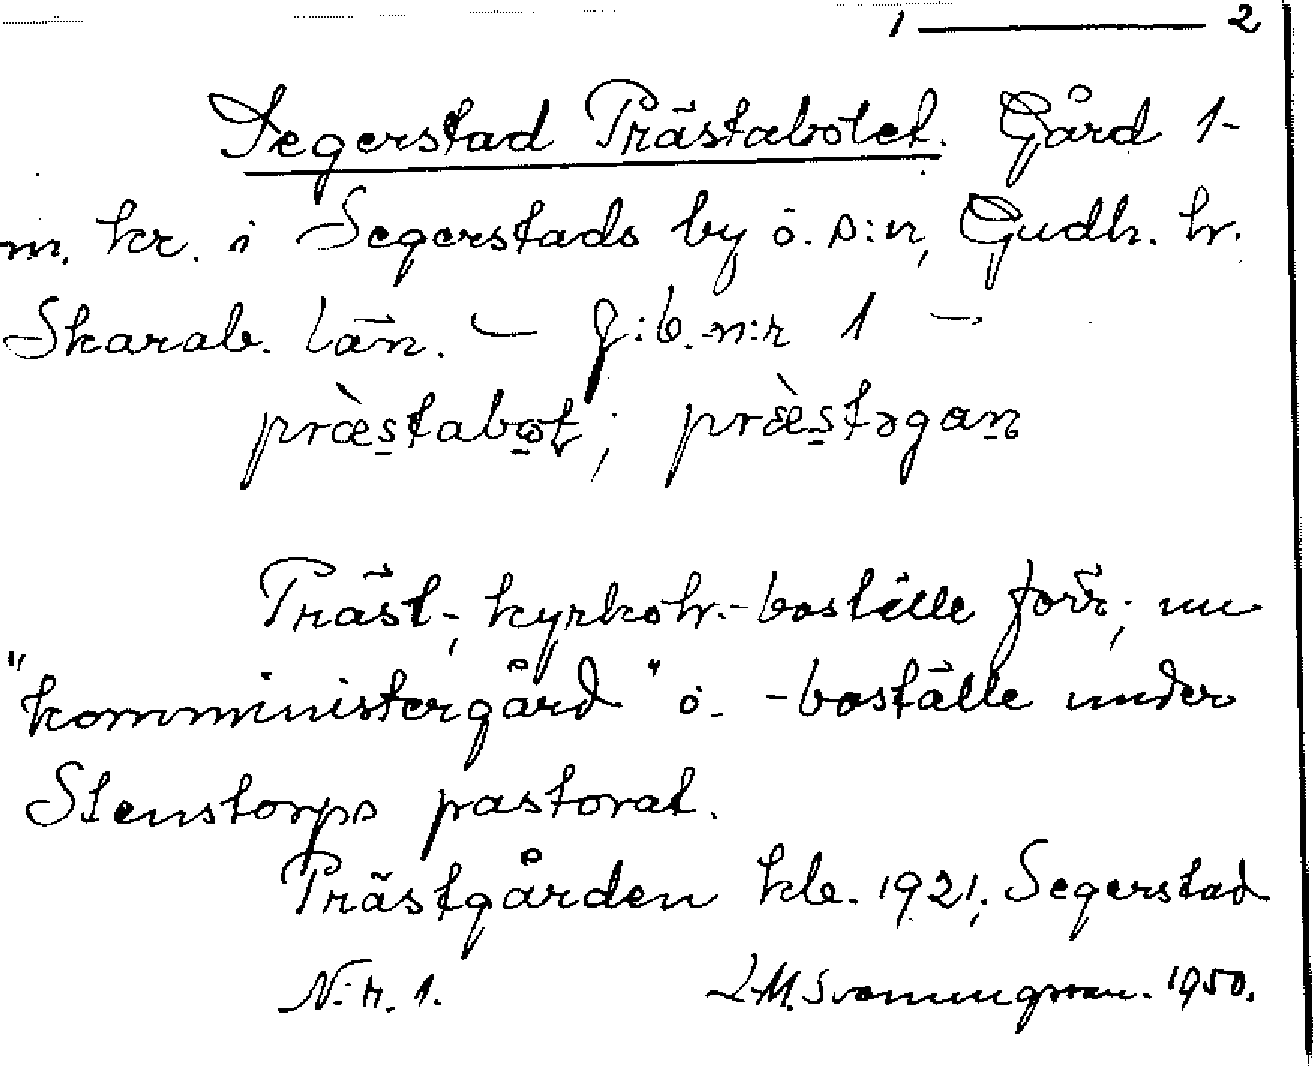 1 ——— 2
Segerstad Prästabolet. Gård 1-
m. kr. i Segerstads by o. s:n, Gudh. hr.
Skarab. län. — J:b. n:r 1 —
præ̀stabot; præ̀stəgan
Präst-, kyrkoh.-boställe förr; nu
"komministergård" o. -boställe under
Stenstorps pastorat.
Prästgården kbc. 1921; Segerstad
N:r. 1. 1950.